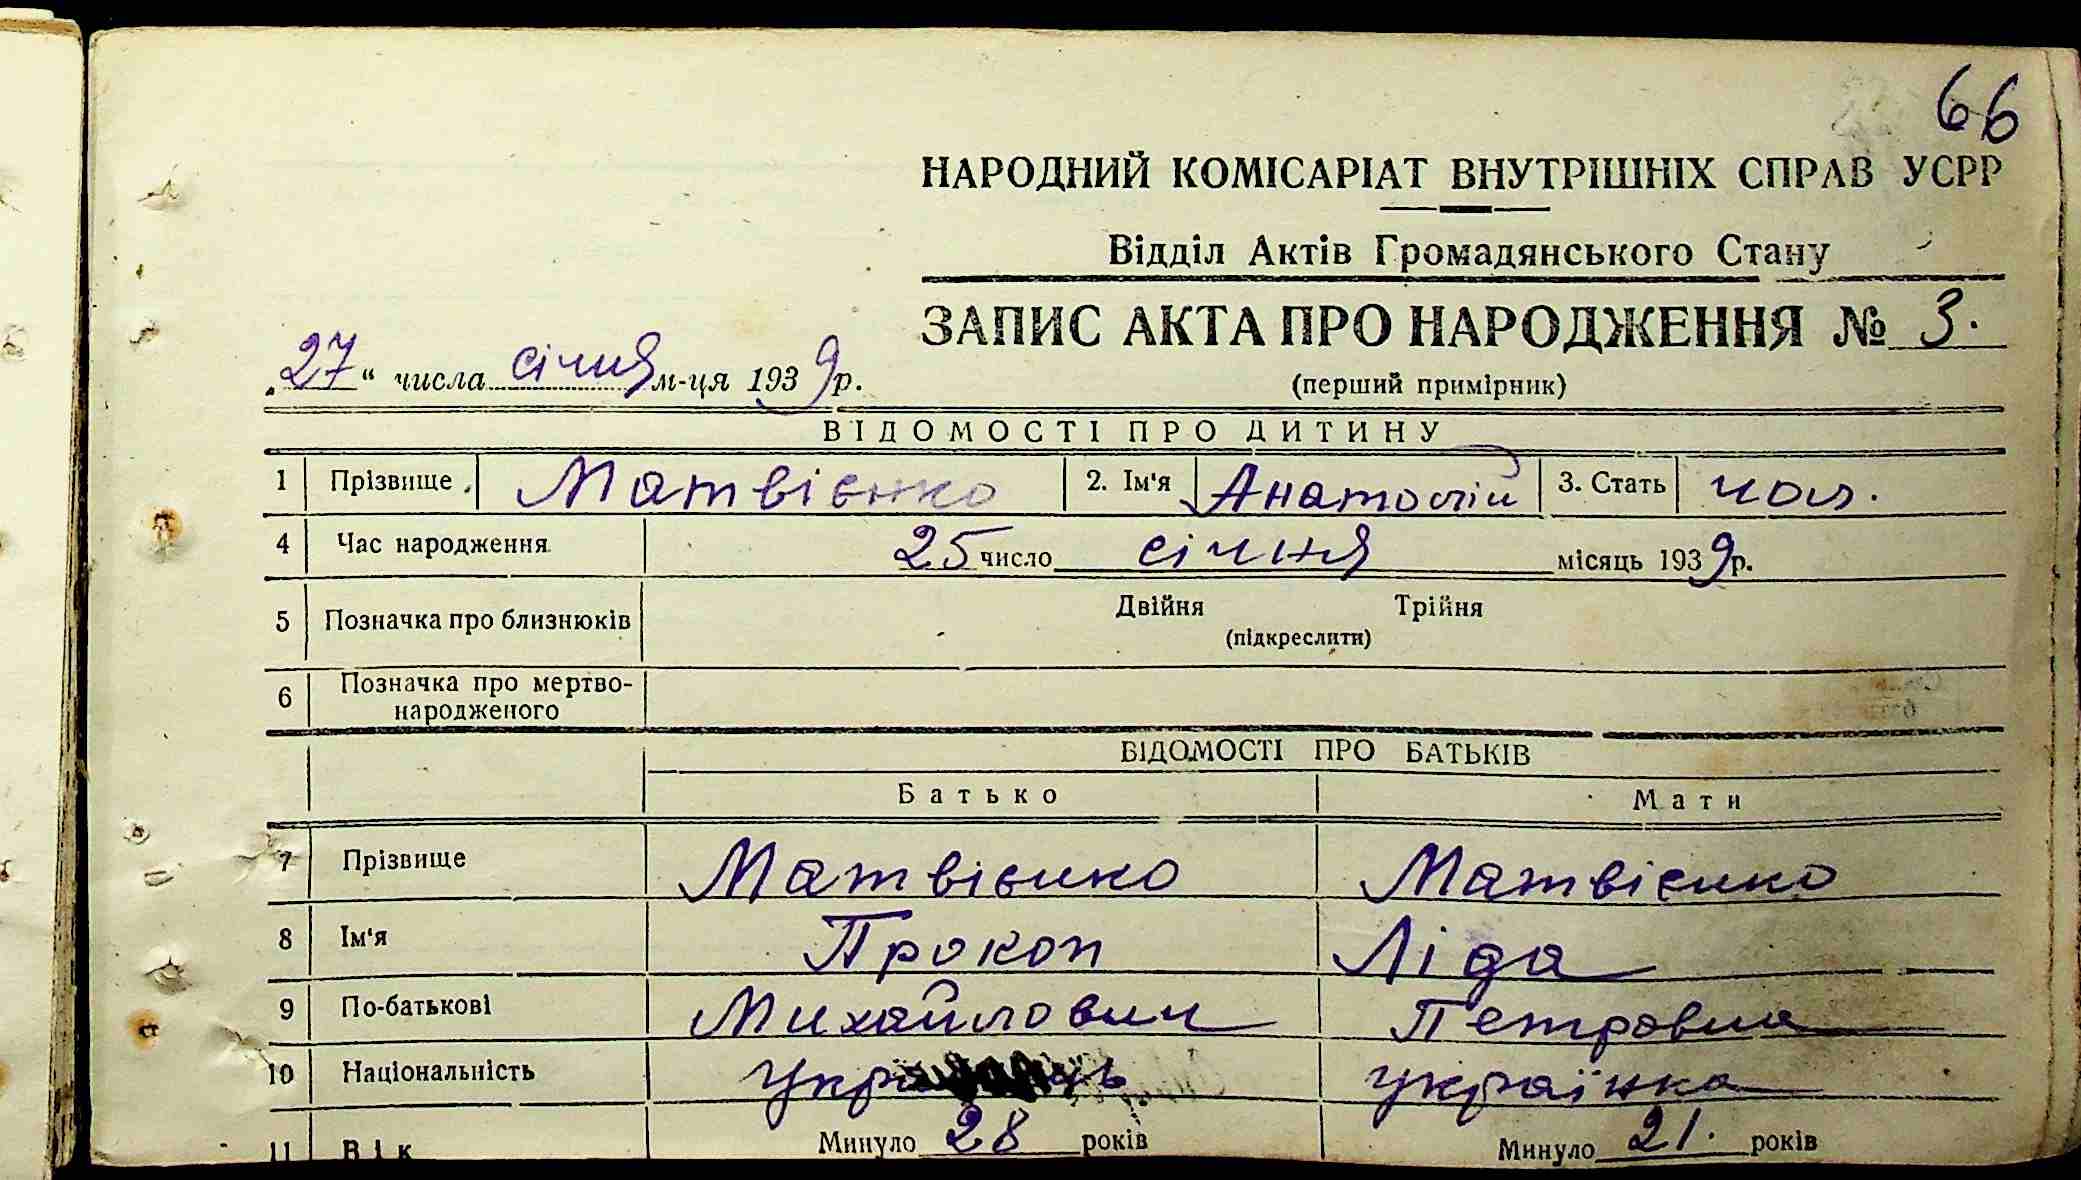 66
НАРОДНИЙ КОМІСАРІАТ ВНУТРІШНІХ СПРАВ УСРР
Відділ Актів Громадянського Стану
ЗАПИС АКТА ПРО НАРОДЖЕННЯ № 3.
„27“ числа січня м-ця 1939р.
(перший примірник)
ВІДОМОСТІ ПРО ДИТИНУ
1 Прізвище Матвієнко 2. Ім'я Анатолій 3. Стать чол.
4 Час народження 25 число січня місяць 1939р.
5 Позначка про близнюків Двійня Трійня
(підкреслити)
6 Позначка про мертво-
народженого
ВІДОМОСТІ ПРО БАТЬКІВ
Батько Мати
7 Прізвище Матвієнко Матвієнко
8 Ім'я Прокоп Ліда
9 По-батькові Михайлович Петровна
10 Національність українка
11 Вік Минуло 28 років Минуло 21. років